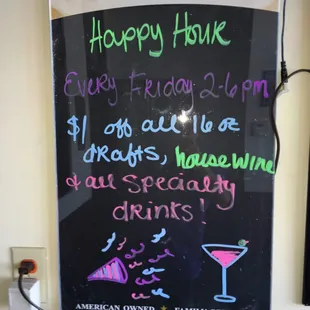 Happy Hour
Every Friday 2-6pm
$1 off all 16 oz
drafts, house wine
& all Specialty
drinks!
AMERICAN OWNED ★ FAMILY